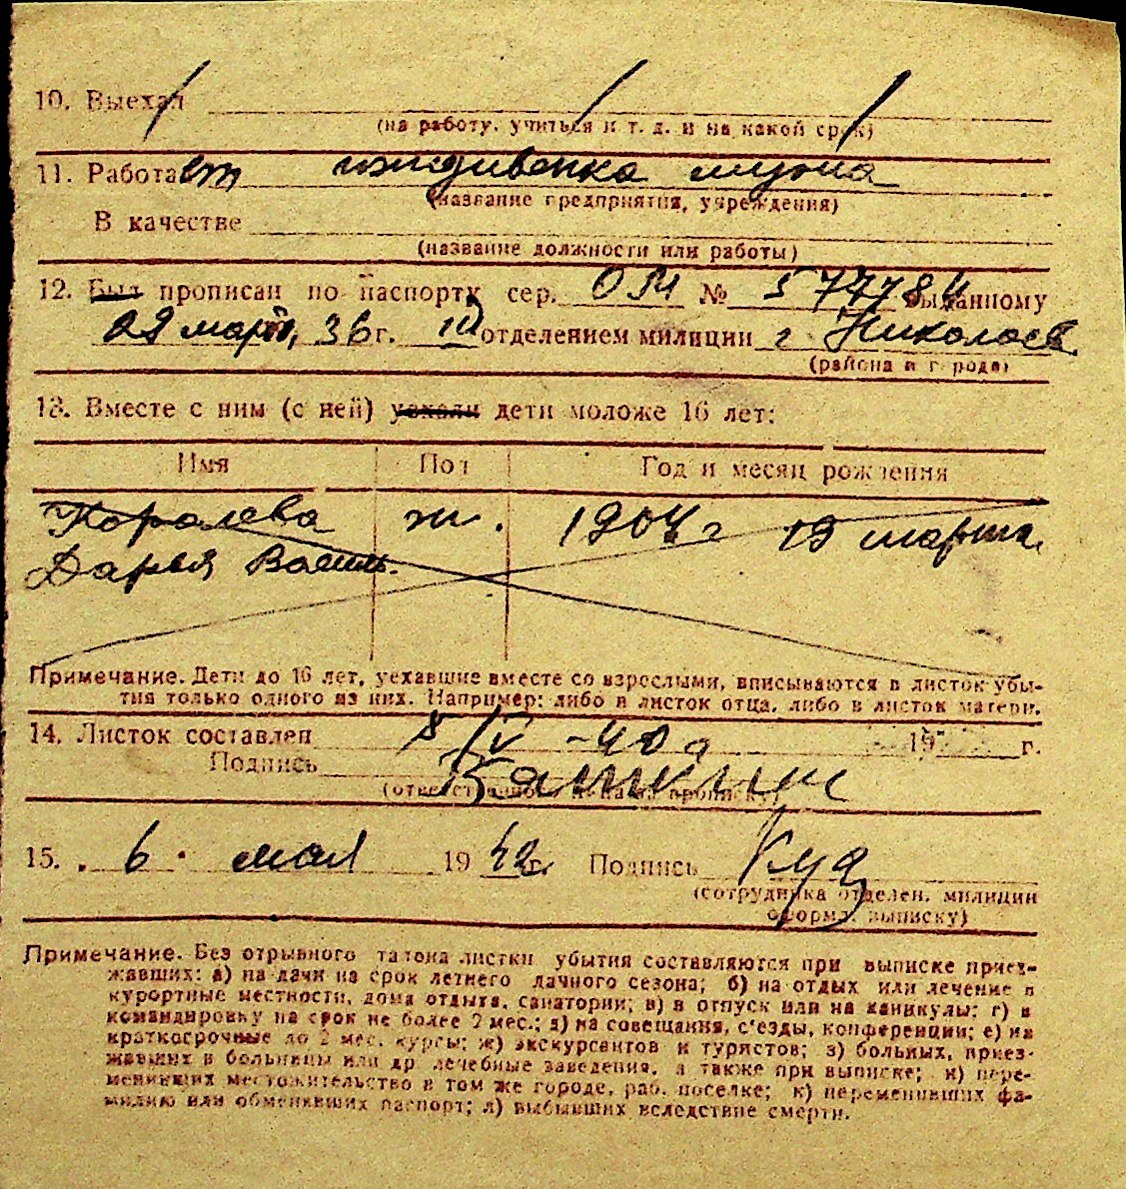 10. Выехал
(на работу, учиться и т. д. и на какой срок)
11. Работает иждивенка мужа
(название предприятия, учреждения)
В качестве
(название должности или работы)
12. Был прописан по паспорту сер. ОМ № 577784 выданному
09 март, 36 г. III отделением милиции г Николаев
(района и города)
13. Вместе с ним (с ней) уехали дети моложе 16 лет:
Имя Пол Год и месяц рождения
Королева ж. 1904 г 19 марта
Дарья Васил.
Примечание. Дети до 16 лет, уехавшие вместе со взрослыми, вписываются в листок убы-
тия только одного из них. Например: либо в листок отца, либо в листок матери.
14. Листок составлен 5/V-40 г 19 г.
Подпись
15. 6 мая 19 42 г. Подпись
(сотрудника отделен. милиции
оформ. выписку)
Примечание. Без отрывного талона листки убытия составляются при выписке приез-
жавших: а) на дачи на срок летнего дачного сезона; б) на отдых или лечение в
курортные местности, дома отдыха, санатории; в) в отпуск или на каникулы; г) в
командировку на срок не более 2 мес.; д) на совещания, с'езды, конференции; е) на
краткосрочные до 2 мес. курсы; ж) экскурсантов и туристов; з) больных, приез-
жавших в больницы или др лечебные заведения, а также при выписке; и) пере-
менивших местожительство в том же городе, раб. поселке; к) переменивших фа-
милию или обменявших паспорт; л) выбывших вследствие смерти.